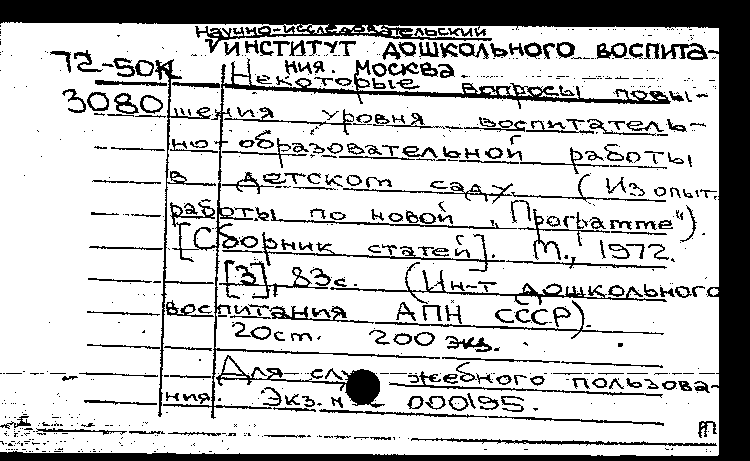 Научно-исследовательский
институт дошкольного воспита-
72-50к ния. Москва.
Некоторые вопросы повы-
3080 шения уровня воспитатель-
но-образовательной работы
в детском саду. (Из опыт.
работы по новой „Программе“).
[Сборник статей]. М., 1972.
[3], 83с. (Ин-т дошкольного
воспитания АПН СССР).
20см. 200 экз.
Для служебного пользова-
ния. Экз. № 000195.